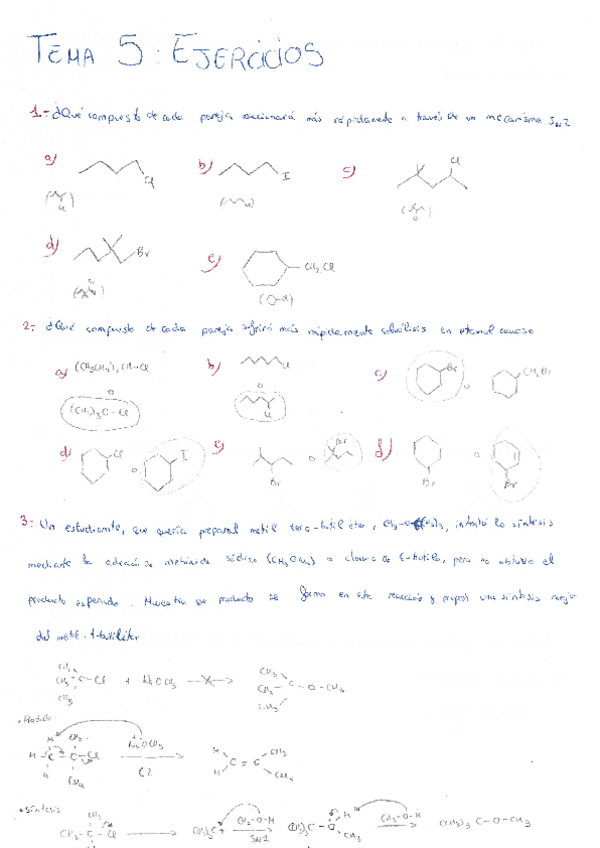 TEMA 5: EJERCICIOS
1.- ¿Qué compuesto de cada pareja reaccionará más rápidamente a través de un mecanismo SN2
a) b) c)
Cl I Cl
d) e)
Br CH2Cl
2.- ¿Qué compuesto de cada pareja sufrirá más rápidamente solvólisis en etanol acuoso
a) (CH3CH2)2CH-Cl b) Cl c) Br o CH2Br
o o
(CH3)3C-Cl Cl
d) Cl o I e) Br o Br d) Br o Br
3.- Un estudiante, que quería preparar metil terc-butil éter, intentó la síntesis
mediante la adición de metóxido sódico (CH3ONa) a cloruro de t-butilo, pero no obtuvo el
producto esperado. Muestra que producto se forma en esta reacción y propon una síntesis mejor
del metil-t-butiléter
CH3 CH3
CH3-C-Cl + NaOCH3 → CH3-C-O-CH3
CH3 CH3
• Producto
H CH3 NaOCH3 H CH3
H-C-C-Cl → C=C
H CH3 E2 H CH3
• Síntesis
CH3 CH3-O-H H CH3-O-H
CH3-C-Cl → (CH3)3C+ → (CH3)3C-O → (CH3)3C-O-CH3
SN1 CH3